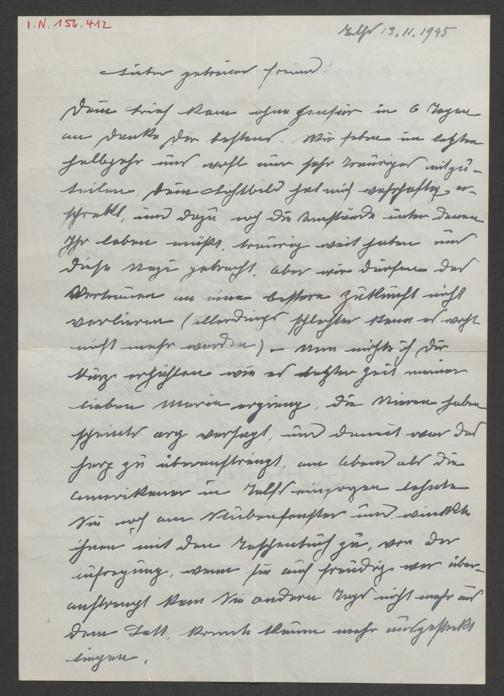 I.N. 156.412
Telfs 13.11.1945
Lieber getreuer Freund!
Dein Brief kam ohne Zensur in 6 Tagen
an danke Dir bestens. Wir haben im letzten
Halbjahr uns wohl nur sehr Trauriges mitzu-
teilen. Dein Lichtbild hat mich wahrhaftig er-
schreckt, und dazu noch die Umstände unter denen
Ihr leben müßt. traurig weit haben uns
diese Nazi gebracht. Aber wir dürfen das
Vertrauen an eine bessere Zukunft nicht
verlieren (allerdings schlechter kann es wohl
nicht mehr werden) – Nun möchte ich Dir
kurz erzählen wie es letzter Zeit meiner
lieben Maria erging. Die Nieren haben
scheints arg versagt, und damit war das
Herz zu überanstrengt, am Abend als die
Amerikaner in Telfs einzogen lehnte
Sie noch am Stubenfenster und winkte
ihnen mit dem Taschentuch zu, von der
Aufregung, wenn sie auch freudig war über-
anstrengt kam Sie andern Tags nicht mehr aus
dem Bett. konnte kaum mehr ausgestreckt
liegen.